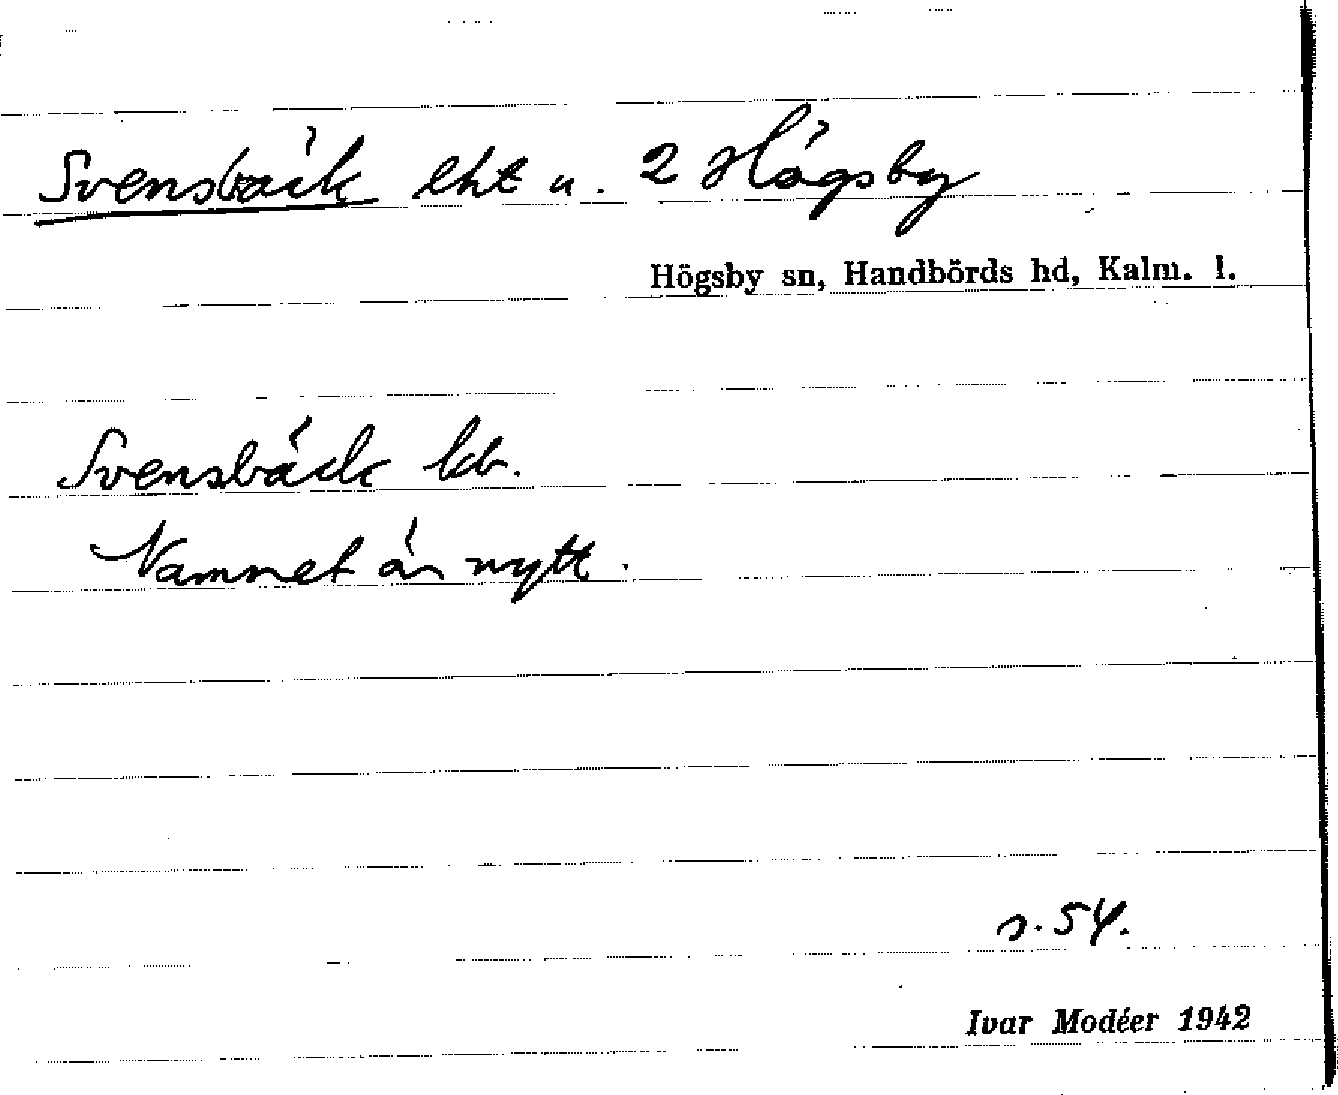 Svensbäck lht u. 2 Högsby
Högsby sn, Handbörds hd, Kalm. l.
Svensbäck kb.
Namnet är nytt.
s. 54.
Ivar Modéer 1942